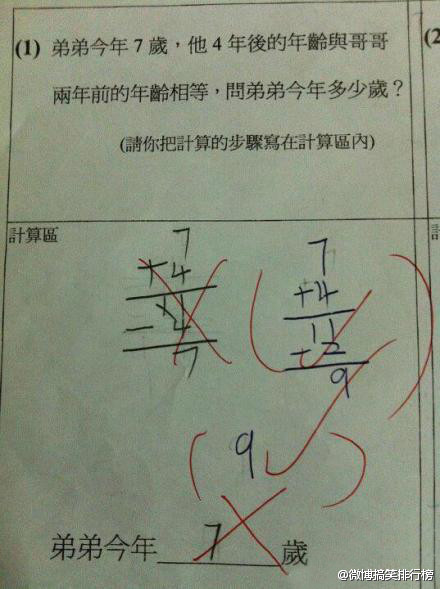 (1) 弟弟今年 7 歲，他 4 年後的年齡與哥哥
兩年前的年齡相等，問弟弟今年多少歲？
(請你把計算的步驟寫在計算區內)
(2
計算區
7
+4
11
- 4
7
7
+4
11
- 2
9
( 9 )
弟弟今年 7 歲
@微博搞笑排行榜